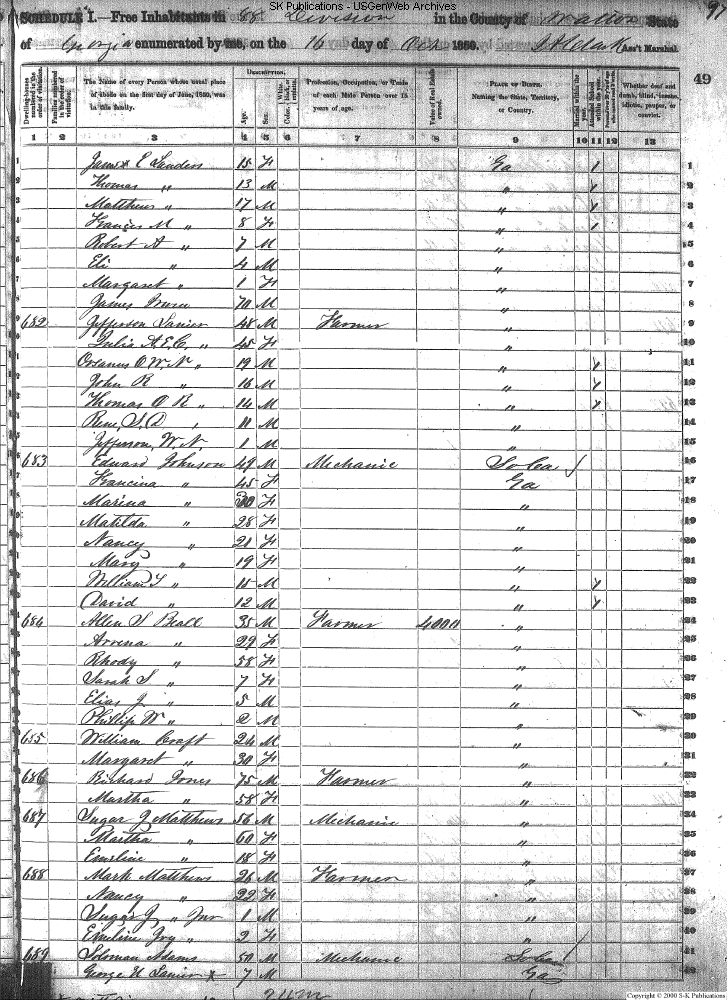 SK Publications - USGenWeb Archives
SCHEDULE I.—Free Inhabitants in 88 Division in the County of Walton State
of Georgia enumerated by me, on the 16 day of Oct 1850. Ass't Marshal.
49
Dwelling-houses numbered in the order of visitation.
Families numbered in the order of visitation.
The Name of every Person whose usual place of abode on the first day of June, 1850, was in this family.
DESCRIPTION.
Age.
Sex.
Color, White, black, or mulatto.
Profession, Occupation, or Trade of each Male Person over 15 years of age.
Value of Real Estate owned.
PLACE OF BIRTH. Naming the State, Territory, or Country.
Married within the year.
Attended School within the year.
Whether deaf and dumb, blind, insane, idiotic, pauper, or convict.
1 2 3 4 5 6 7 8 9 10 11 12 13
1 E Sanders 15 F Ga / 1
2 Thomas " 13 M " / 2
3 Matthew " 17 M " / 3
4 Frances M " 8 F " / 4
5 Robert A " 7 M " 5
Eli " 4 M " 6
7 Margaret " 1 F " 7
James 70 M " 8
682 Jefferson Lanier 48 M Farmer " 9
Julia A. E. C. " 45 F " 10
O. W. N. " 19 M " / 11
John R " 16 M " / 12
Thomas O R " 14 M " / 13
S. D. " 11 M " 14
Jefferson, W. N. 1 M " 15
683 Edward Johnson 49 M Mechanic So Ca / 16
Francina " 45 F Ga 17
Marina " 30 F " 18
Matilda " 28 F " 19
Nancy " 21 F " 20
Mary " 19 F " 21
William T " 15 M " / 22
David " 12 M " / 23
684 Allen S Beall 35 M Farmer 4000 " 24
Arrena " 29 F " 25
Rhody " 58 F " 26
Sarah S " 7 F " 27
Elias J " 5 M " 28
Phillip W " 2 M " 29
685 William Craft 24 M " 30
Margaret " 30 F "
686 Richard Jones 75 M Farmer "
Martha " 58 F "
687 Sugar J Matthews 56 M Mechanic "
Martha " 60 F "
Emeline " 18 F "
688 Mark Matthews 26 M Farmer "
Nancy " 22 F "
Sugar J " Jnr 1 M "
Emeline Ivy " 2 F " 40
689 Soloman Adams 50 M Mechanic So Ca 41
George H Lanier x 7 M Ga 42
24 m
Copyright © 2000 S-K Publications